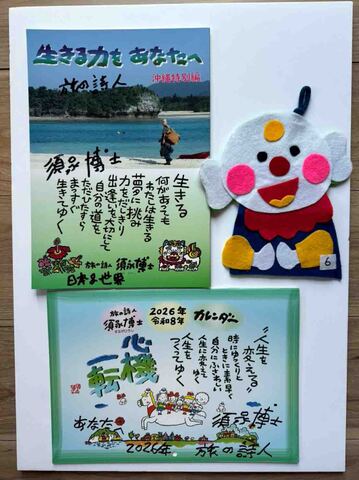 生きる力を あなたへ
旅の詩人
沖縄特別編
須永博士
生きる
何があっても
わたしは生きる
夢に挑み
力をだしきり
出逢いを大切にして
自分の道を
ただひたすら
まっすぐ
生きてゆく
旅の詩人 須永博士
日本&世界
6
旅の詩人
須永博士
2026年
令和8年
カレンダー
心機一転
"人生を変える"
時にゆっくりと
ときに素早く
自分にふさわしい
人生に変えてゆく
人生を
つくってゆく
須永博士
あなたへ
2026年
旅の詩人